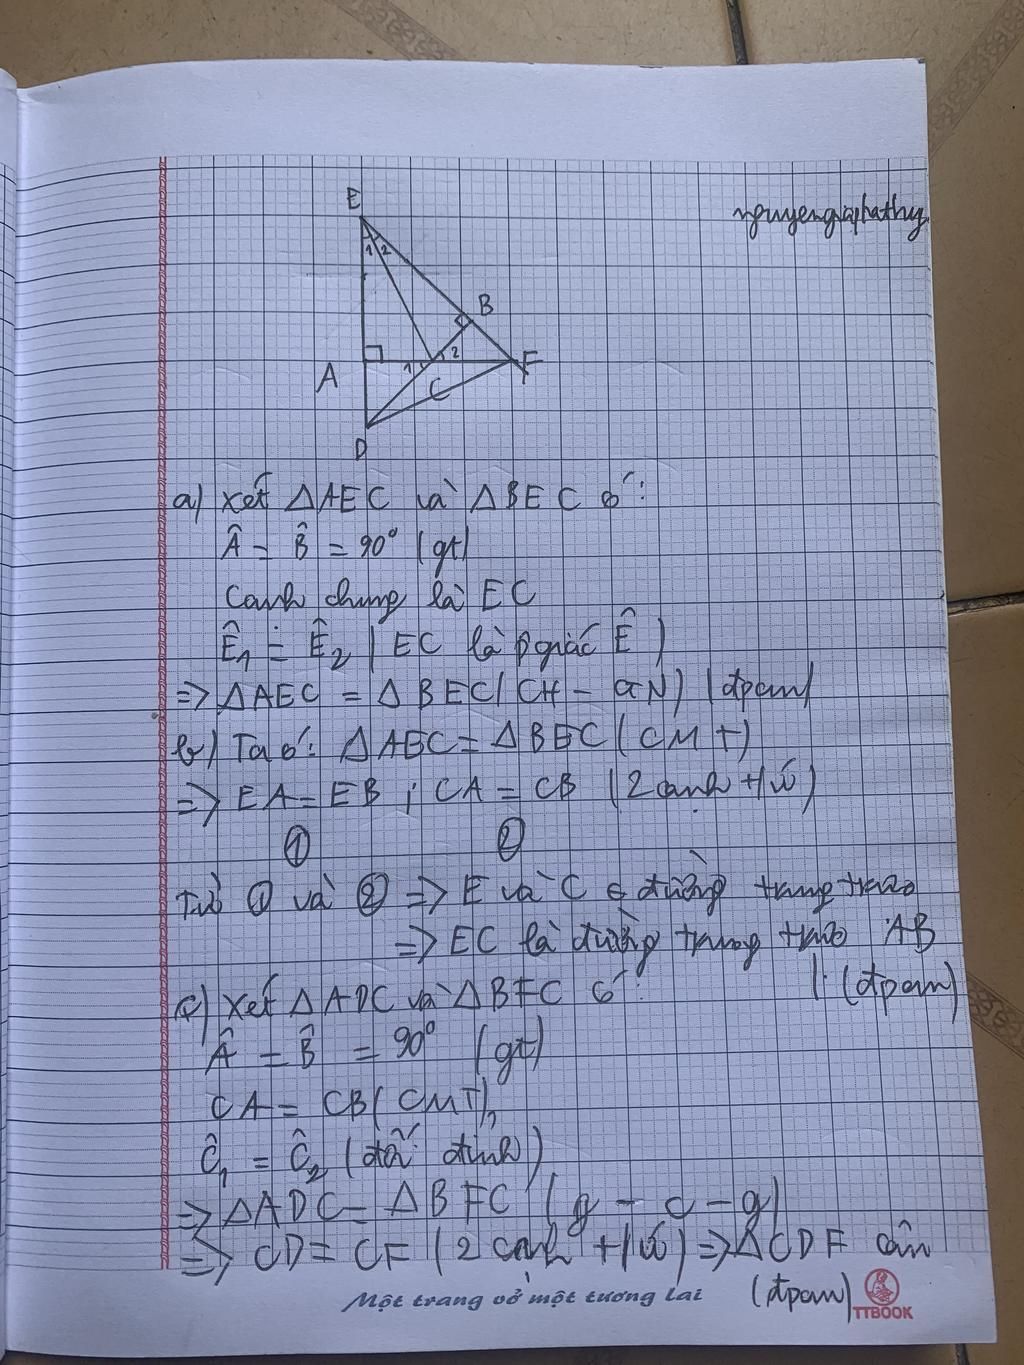 nguyengiaphathy
E
1 2
B
A
1
2
F
C
D
a) Xét ΔAEC và ΔBEC có:
Â = B̂ = 90° (gt)
Cạnh chung là EC
Ê₁ = Ê₂ (EC là pgiác Ê)
=> ΔAEC = ΔBEC (CH - GN) (đpcm)
b) Ta có: ΔAEC = ΔBEC (CMT)
=> EA = EB ; CA = CB (2 cạnh t/ứ)
① ②
Từ ① và ② => E và C ∈ đường trung trực
=> EC là đường trung trực AB
(đpcm)
c) Xét ΔADC và ΔBFC có:
Â = B̂ = 90° (gt)
CA = CB (CMT)
Ĉ₁ = Ĉ₂ (đối đỉnh)
=> ΔADC = ΔBFC (g - c - g)
=> CD = CF (2 cạnh t/ứ) => ΔCDF cân
(đpcm)
Một trang vở một tương lai
TTBOOK